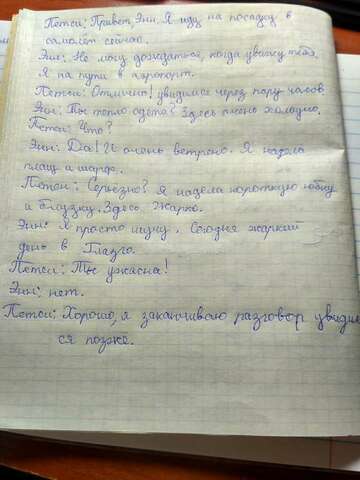 Петси: Привет, Энн. Я иду на посадку в
самолёт сейчас.
Энн: Не могу дождаться, когда увижу тебя.
Я на пути в аэропорт.
Петси: Отлично! увидимся через пару часов.
Энн: Ты тепло одета? Здесь очень холодно.
Петси: Что?
Энн: Да! И очень ветрено. Я надела
плащ и шарф.
Петси: Серьезно? Я надела короткую юбку
и блузку. Здесь жарко.
Энн: Я просто шучу. Сегодня жаркий
день в Глазго.
Петси: Ты ужасна!
Энн: нет.
Петси: Хорошо, я заканчиваю разговор увидим
ся позже.